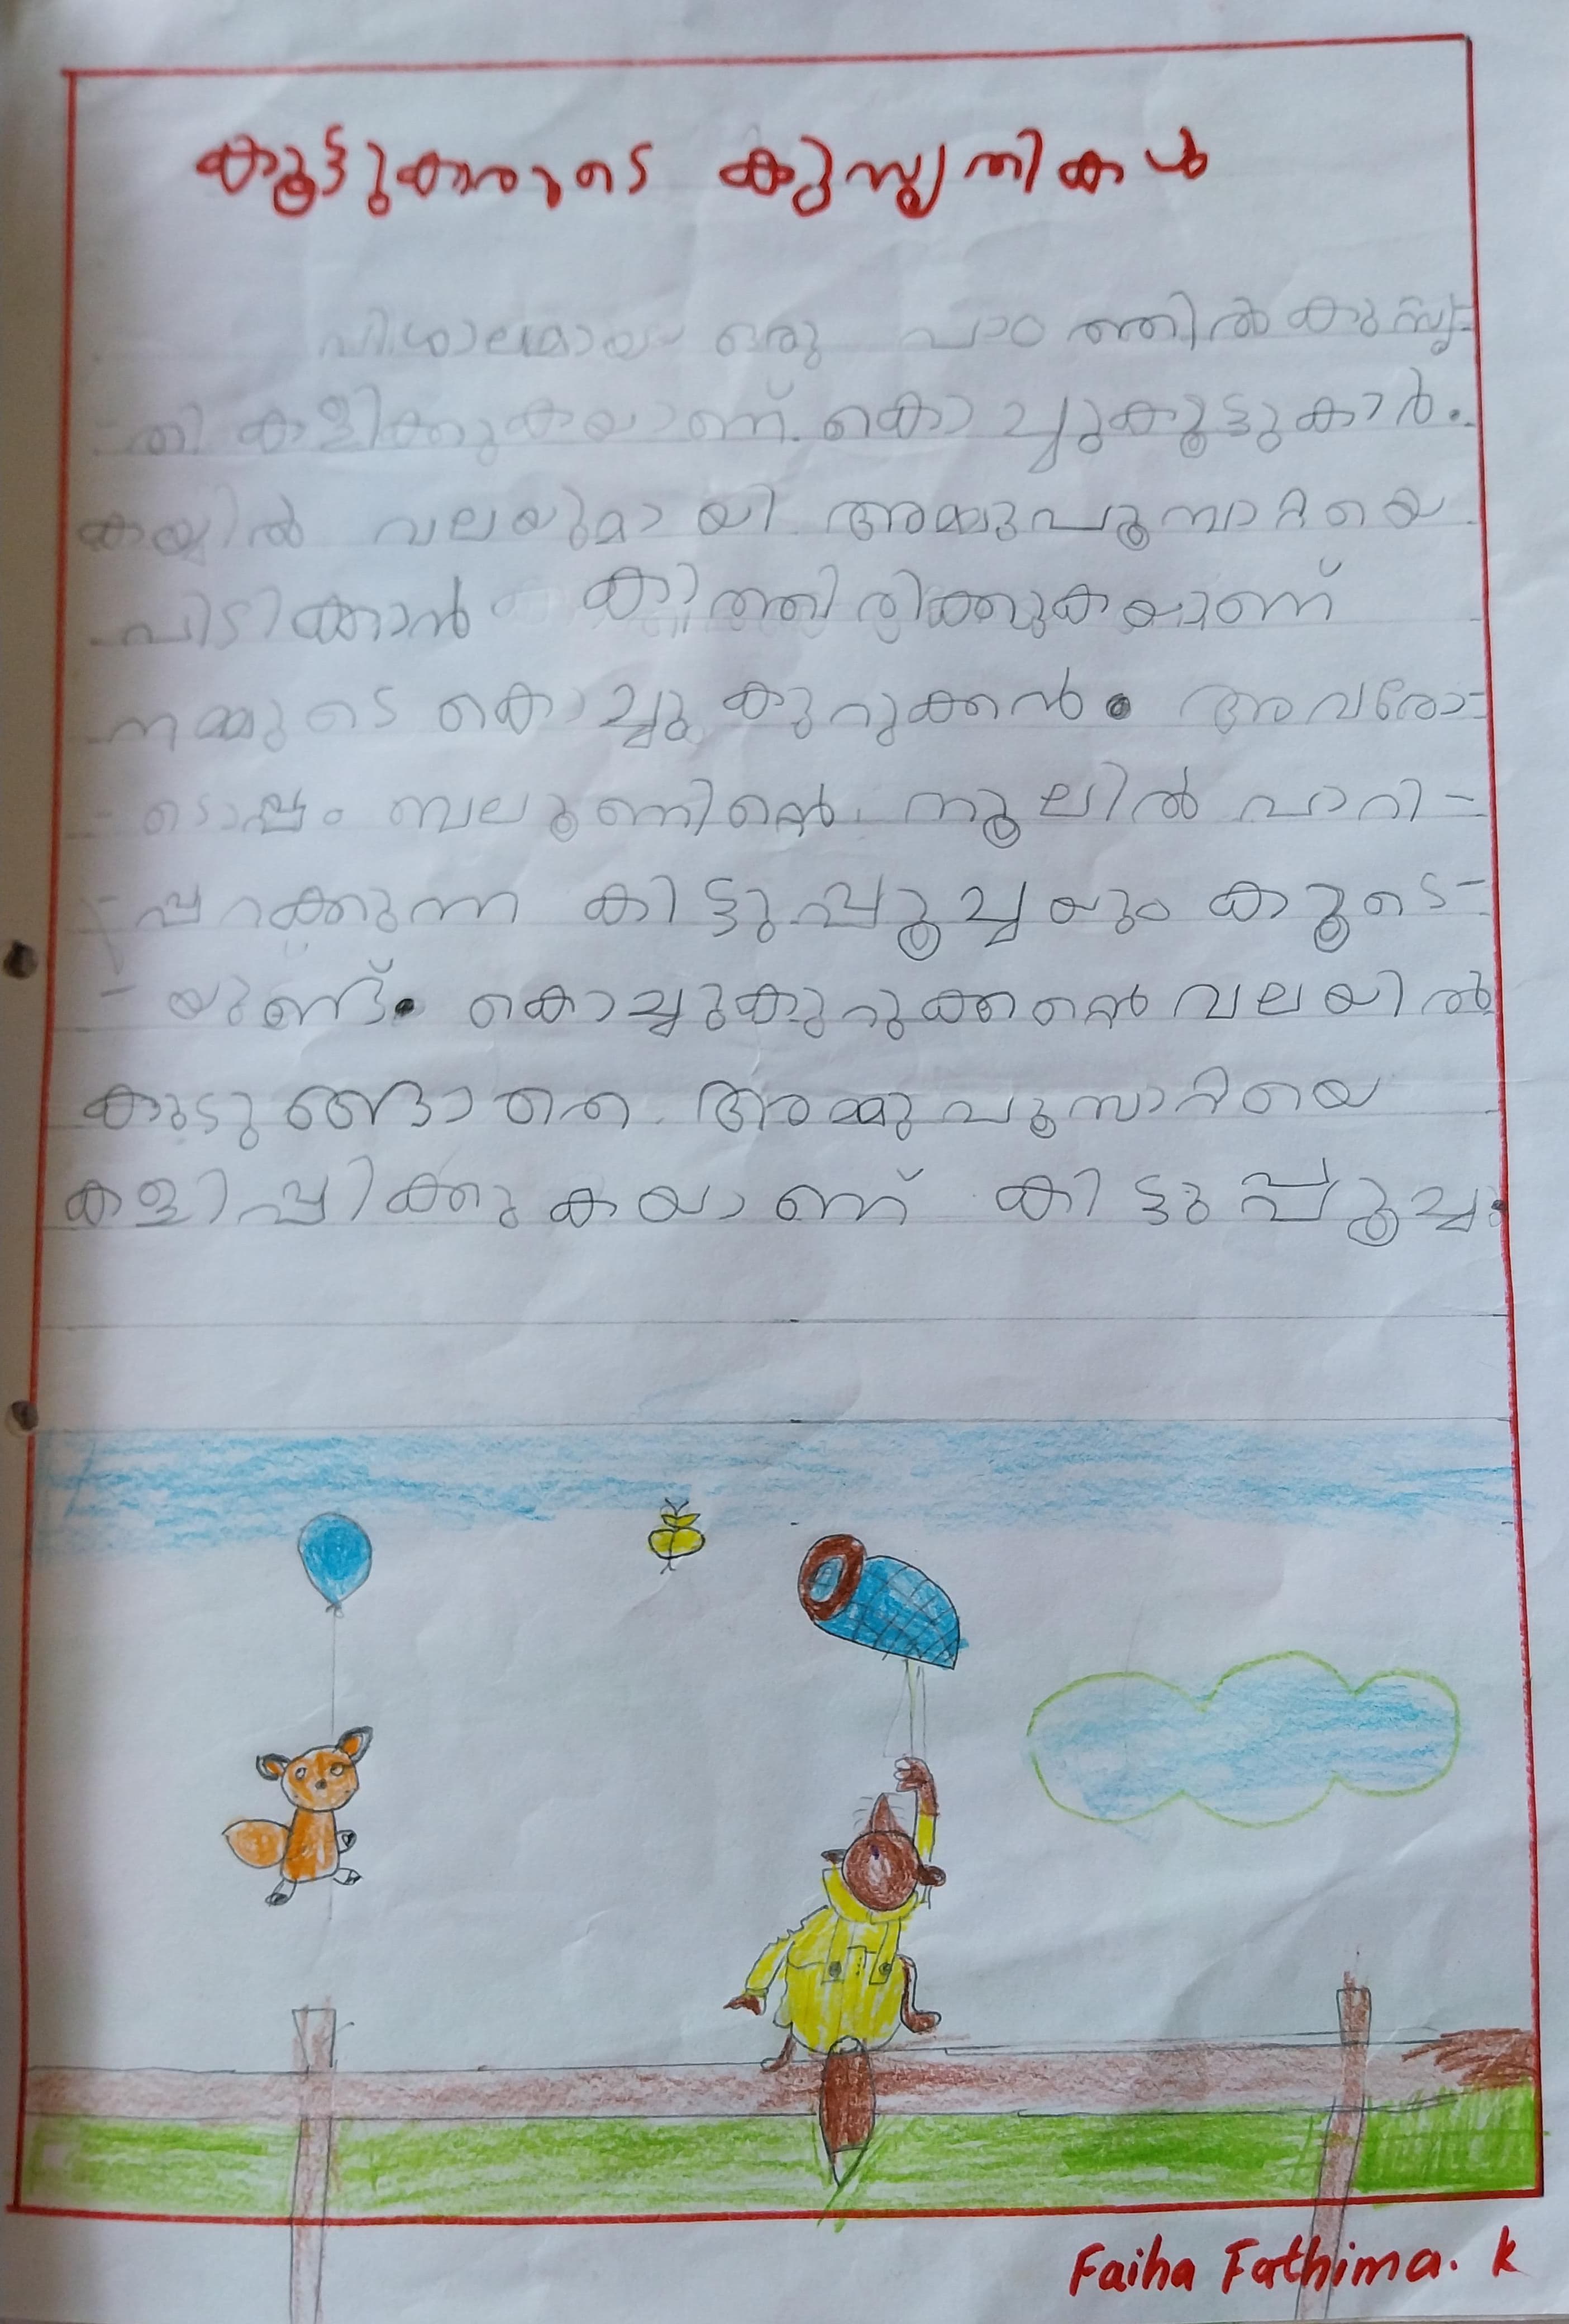 കൂട്ടുകാരുടെ കുസൃതികൾ
വിശാലമായ ഒരു പാഠത്തിൽ കുസൃ-
-തി കളിക്കുകയാണ് കൊച്ചുകൂട്ടുകാർ.
കയ്യിൽ വലയുമായി അമ്മുപൂമ്പാറ്റയെ
പിടിക്കാൻ കാത്തിരിക്കുകയാണ്
നമ്മുടെ കൊച്ചു കുറുക്കൻ. അവരോ-
-ടൊപ്പം ബലൂണിന്റെ നൂലിൽ പാറി-
-പ്പറക്കുന്ന കിട്ടുപ്പൂച്ചയും കൂടെ-
-യുണ്ട്. കൊച്ചുകുറുക്കന്റെ വലയിൽ
കുടുങ്ങാതെ അമ്മുപൂമ്പാറ്റയെ
കളിപ്പിക്കുകയാണ് കിട്ടുപ്പൂച്ച.
Faiha Fathima. K